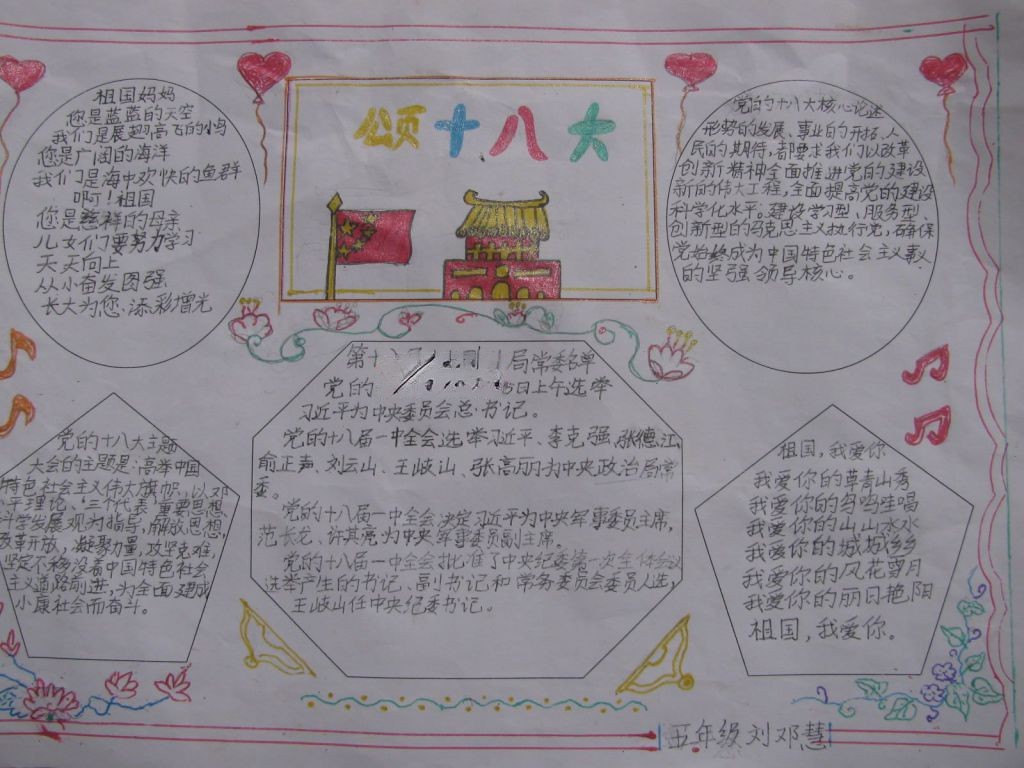 颂十八大
祖国妈妈
您是蓝蓝的天空
我们是展翅高飞的小鸟
您是广阔的海洋
我们是海中欢快的鱼群
啊！祖国
您是慈祥的母亲
儿女们要努力学习
天天向上
从小奋发图强
长大为您添彩增光
党的十八大核心论述
形势的发展、事业的开拓、人
民的期待，都要求我们以改革
创新精神全面推进党的建设
新的伟大工程，全面提高党的建设
科学化水平。建设学习型、服务型、
创新型的马克思主义执行党，确保
党始终成为中国特色社会主义事业
的坚强领导核心。
第十 局常委名单
党的 日上午选举
习近平为中央委员会总书记。
党的十八届一中全会选举习近平、李克强、张德江、
俞正声、刘云山、王岐山、张高丽为中央政治局常
委。
党的十八届一中全会决定习近平为中央军事委员主席，
范长龙、许其亮为中央军事委员副主席。
党的十八届一中全会批准了中央纪委第一次全体会议
选举产生的书记、副书记和常务委员会委员人选，
王岐山任中央纪委书记。
党的十八大主题
大会的主题是：高举中国
特色社会主义伟大旗帜，以邓
平理论、“三个代表”重要思想、
科学发展观为指导，解放思想，
改革开放，凝聚力量，攻坚克难，
坚定不移沿着中国特色社会
主义道路前进，为全面建成
小康社会而奋斗。
祖国，我爱你
我爱你的草青山秀
我爱你的鸟鸣莺唱
我爱你的山山水水
我爱你的城城乡乡
我爱你的风花雪月
我爱你的丽日艳阳
祖国，我爱你。
五年级刘邓慧